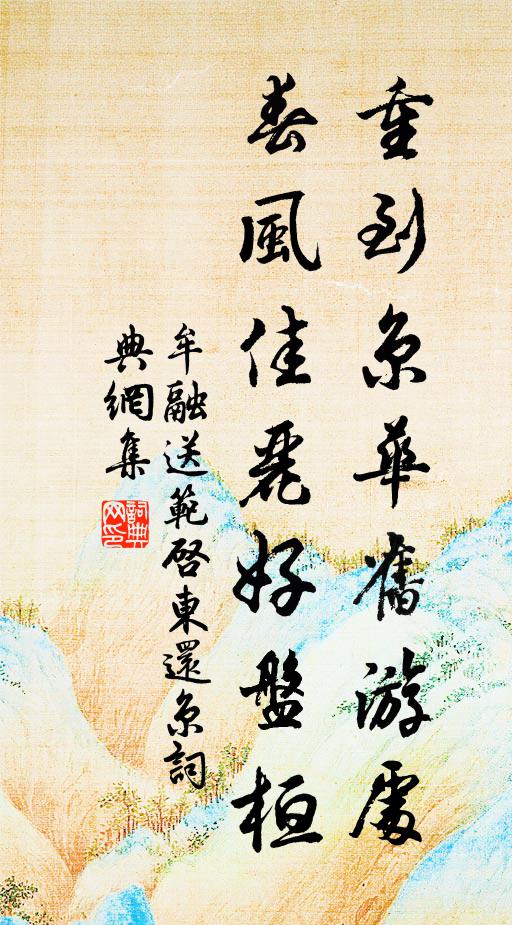 重到京華舊游處
春風佳麗好盤桓
牟融送範啓東還京詞
典網集
詞典網印